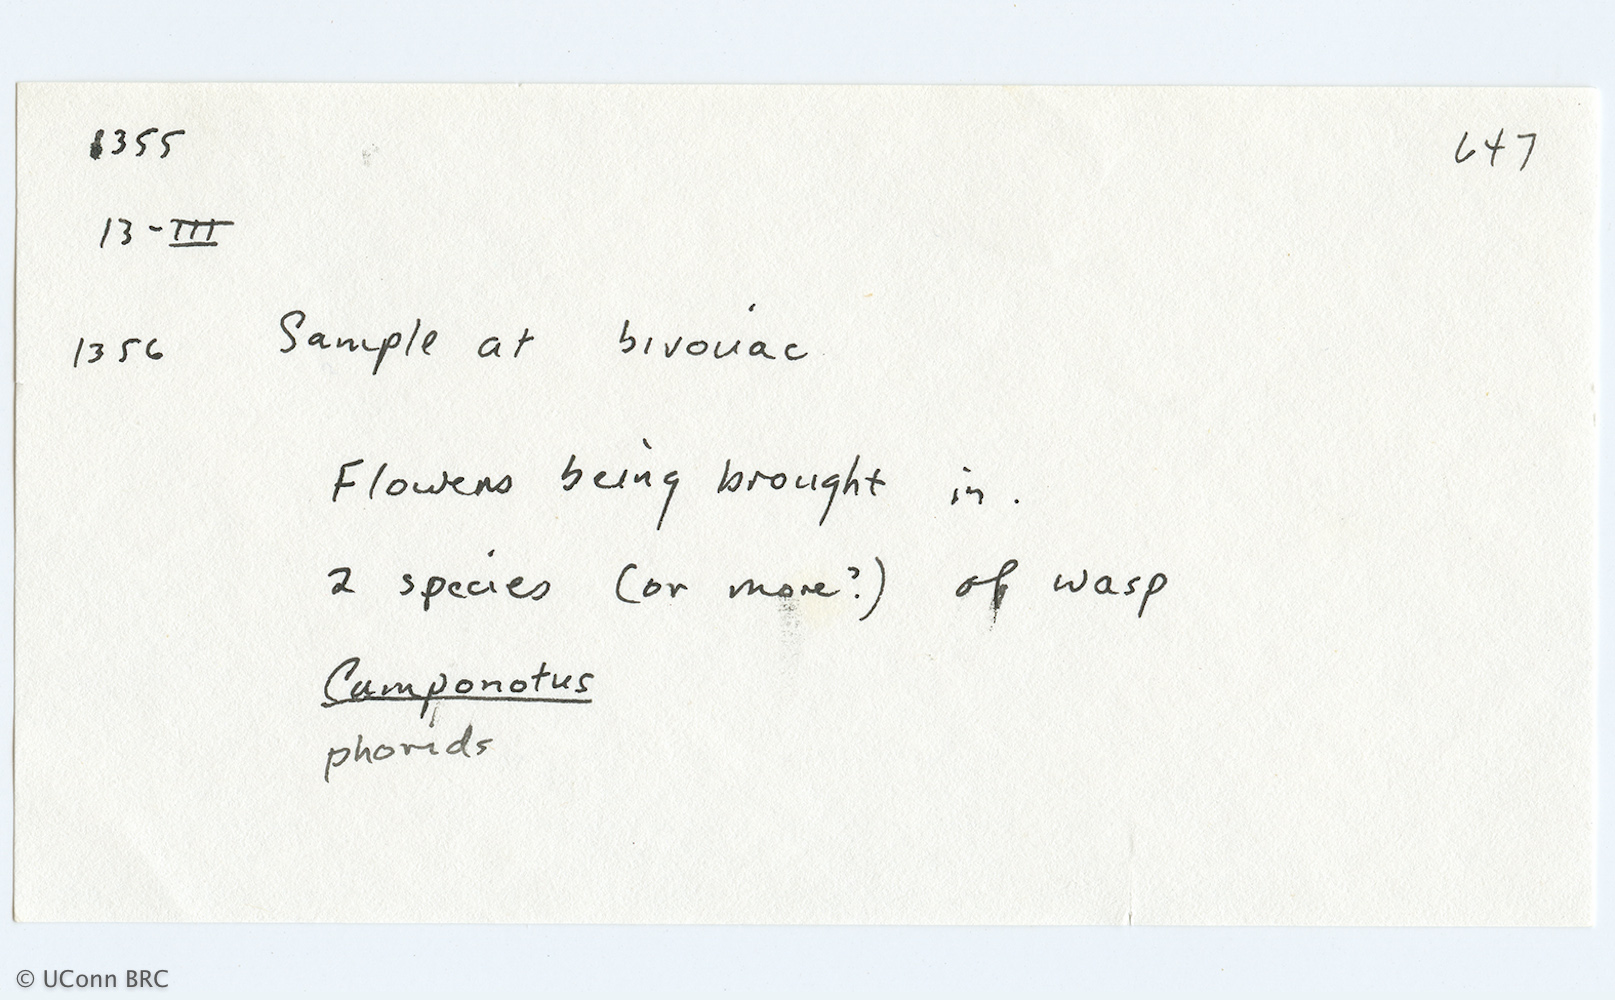 1355 647
13-III
1356 Sample at bivouac
Flowers being brought in.
2 species (or more?) of wasp
Camponotus
phorids
© UConn BRC